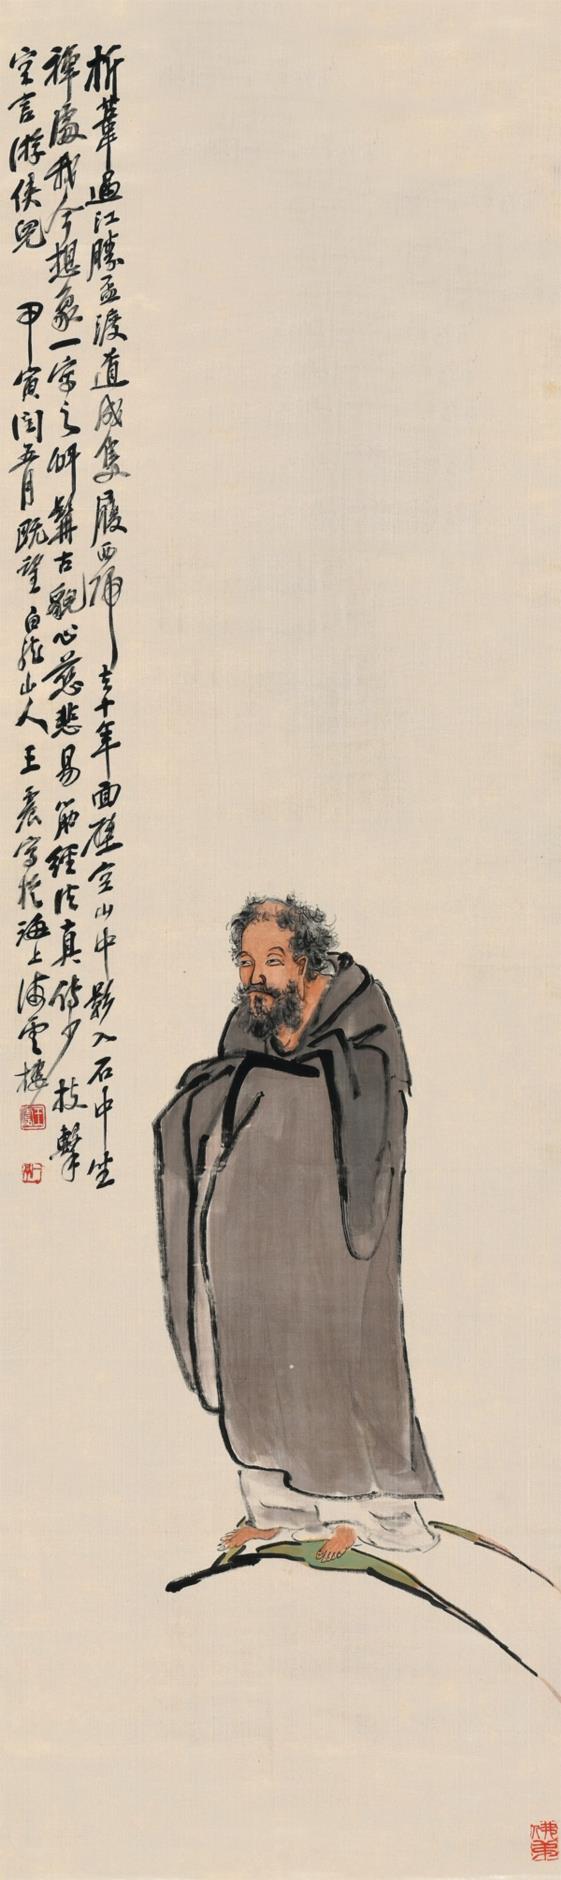 折葦過江勝孟渡道成隻履西歸去十年面壁空山中影入石中坐
禪處我今想象一宗之研髯古貌心慈悲易筋經法真傳少技擊
空言游俠兒 甲寅閏五月既望白龍山人王震寫於海上海雲樓
王震
佛弟